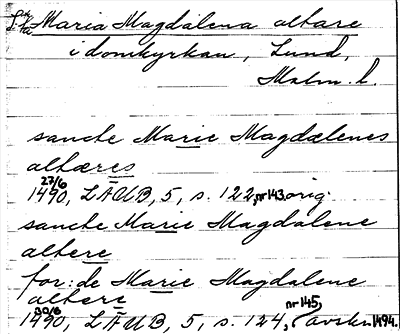 S:ta Maria Magdalena altare
i domkyrkan, Lund,
Malm. l.
sancte Marie Magdalenes
altæres
27/6
1490, LÄUB, 5, s. 122, nr 143. orig.
sancte Marie Magdalene
altere
for:de Marie Magdalene
altere
30/6 1490, LÄUB, 5, s. 124, nr 145, (avskr. 1494.